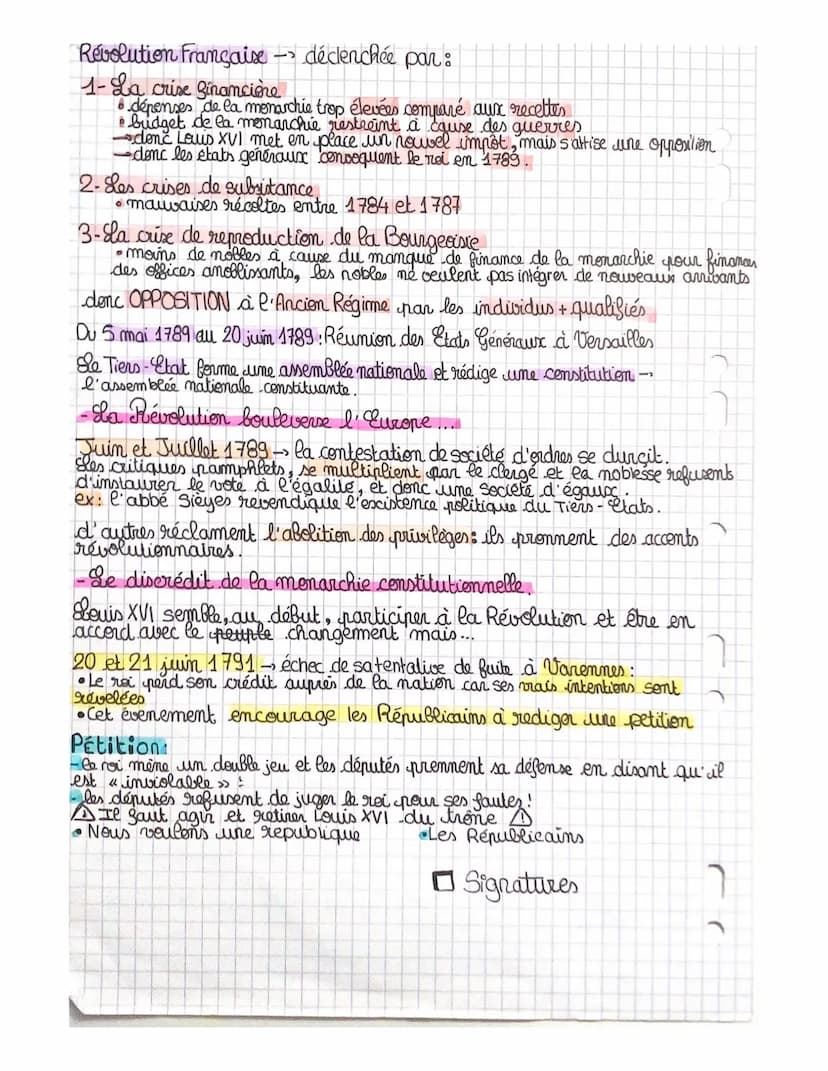 Révolution Française -> déclenchée par :
1- La crise financière
• dépenses de la monarchie trop élevées comparé aux recettes
• budget de la monarchie restreint à cause des guerres
→ donc Louis XVI met en place un nouvel impôt, mais s'attise une opposition
→ donc les états généraux convoquent le roi en 1789.
2- Les crises de subsistance
• mauvaises récoltes entre 1784 et 1787
3- La crise de reproduction de la Bourgeoisie
• moins de nobles à cause du manque de finance de la monarchie pour financer
des offices anoblissants, les nobles ne veulent pas intégrer de nouveaux arrivants
donc OPPOSITION à l'Ancien Régime par les individus + qualifiés
Du 5 mai 1789 au 20 juin 1789 : Réunion des Etats Généraux à Versailles
Le Tiers-Etat forme une assemblée nationale et rédige une constitution →
l'assemblée nationale constituante.
- La Révolution bouleverse l'Europe...
Juin et Juillet 1789 → la contestation de société d'ordres se durcit.
Les critiques pamphlets, se multiplient par le clergé et la noblesse refusents
d'instaurer le vote à l'égalité, et donc une société d'égaux.
ex : l'abbé Sièyes revendique l'existence politique du Tiers-Etats.
d'autres réclament l'abolition des privilèges : ils prennent des accents
révolutionnaires.
- Le discrédit de la monarchie constitutionnelle.
Louis XVI semble, au début, participer à la Révolution et être en
accord avec le peuple changement mais...
20 et 21 juin 1791 → échec de sa tentative de fuite à Varennes :
• Le roi perd son crédit auprès de la nation car ses vrais intentions sont
révelées
• Cet évenement encourage les Républicains à rediger une petition
Pétition :
- le roi mène un double jeu et les députés prennent sa défense en disant qu'il
est « inviolable » !
- les députés refusent de juger le roi pour ses fautes !
⚠ Il faut agir et retirer Louis XVI du trône ⚠
• Nous voulons une republique • Les Républicains
□ Signatures